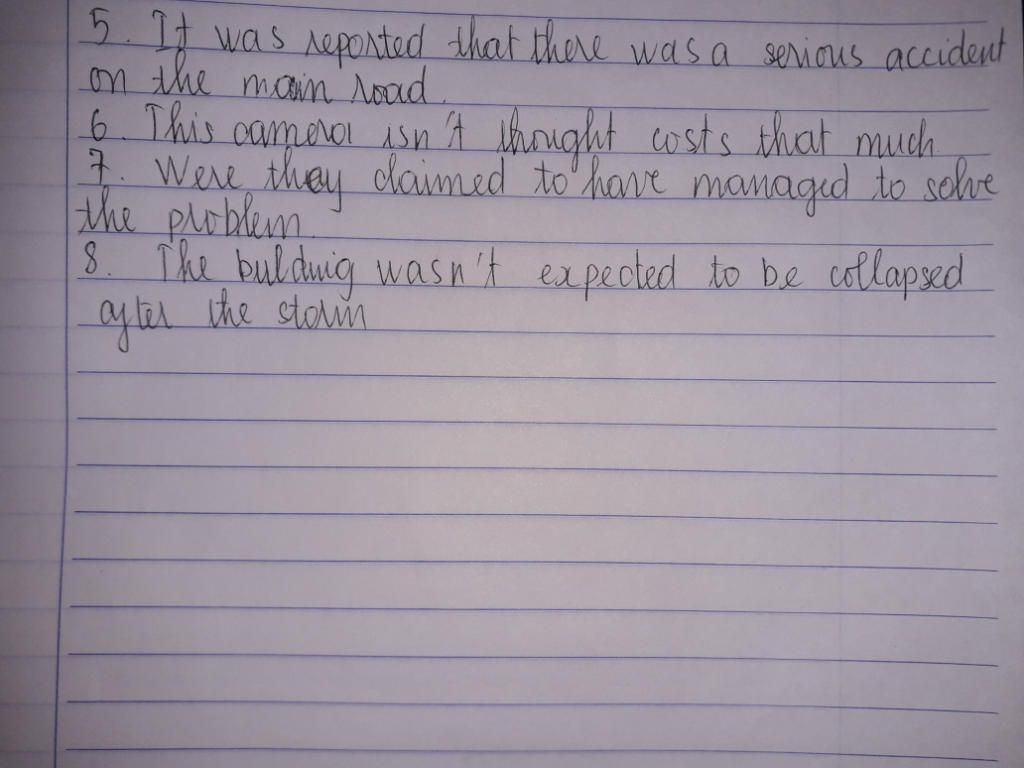 5. It was reported that there was a serious accident
on the main road.
6. This camera isn't thought costs that much.
7. Were they claimed to have managed to solve
the problem.
8. The bulding wasn't expected to be collapsed
after the storm